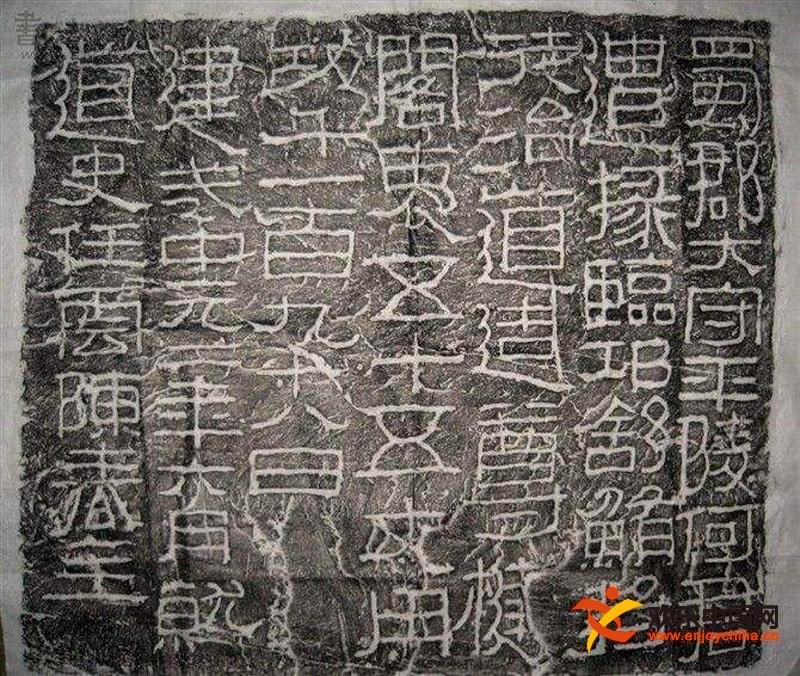 蜀郡大守平陵何君
遣掾臨邛舒鮪將
徒治道造尊楗
閣袤五十五丈用
功千一百九十八日
建武中元二年六月就
道史任雲陳春主
www.enjoychina.cn